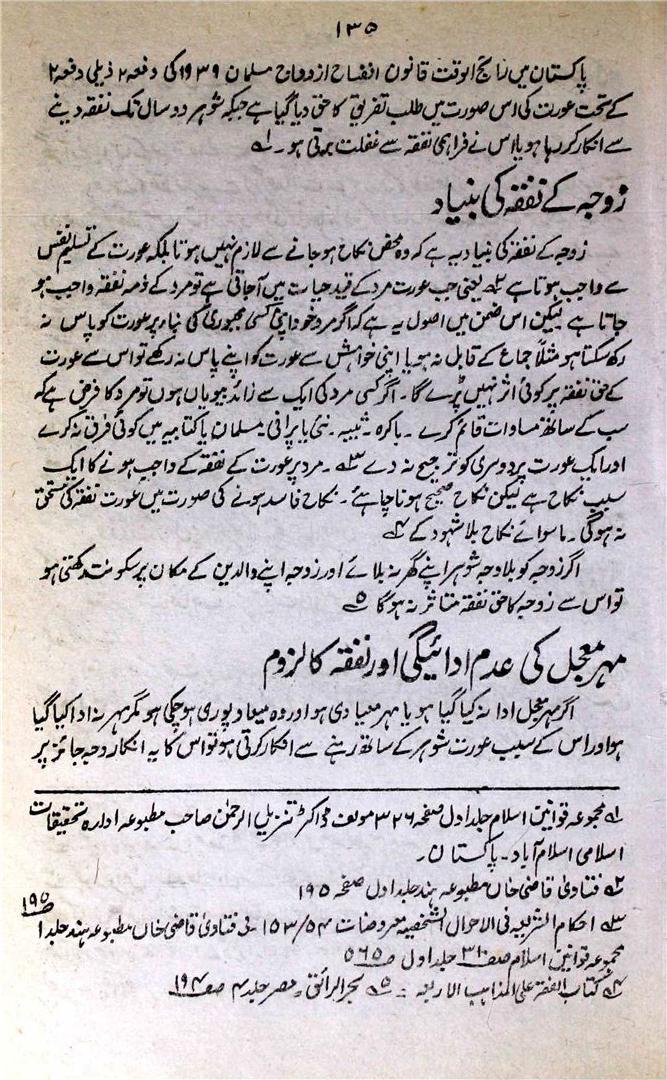 ۱۳۵
پاکستان میں رائج الوقت قانون انفساخ ازدواج مسلمان ۱۹۳۹ کی دفعہ ۲ ذیلی دفعہ ۲
کے تحت عورت کی اس صورت میں طلب تفریق کا حق دیا گیا ہے جبکہ شوہر دو سال تک نفقہ دینے
سے انکار کر رہا ہو یا اس نے فراہمی نفقہ سے غفلت برتی ہو۔ ۱؎
زوجہ کے نفقہ کی بنیاد
زوجہ کے نفقہ کی بنیاد یہ ہے کہ وہ محض نکاح ہو جانے سے لازم نہیں ہوتا بلکہ عورت کے تسلیم نفس
سے واجب ہوتا ہے ۲؎ یعنی جب عورت مرد کے قید حیات میں آجاتی ہے تو مرد کے ذمہ نفقہ واجب ہو
جاتا ہے لیکن اس ضمن میں اصول یہ ہے کہ اگر مرد خود اپنی کسی مجبوری کی بناء پر عورت کو پاس نہ
رکھ سکتا ہو مثلاً جماع کے قابل نہ ہو یا اپنی خواہش سے عورت کو اپنے پاس نہ رکھے تو اس سے عورت
کے حق نفقہ پر کوئی اثر نہیں پڑے گا۔ اگر کسی مرد کی ایک سے زائد بیویاں ہوں تو مرد کا فرض ہے کہ
سب کے ساتھ مساوات قائم کرے۔ باکرہ۔ ثیبہ۔ نئی یا پرانی۔ مسلمان یا کتابیہ میں کوئی فرق نہ کرے
اور ایک عورت پر دوسری کو ترجیع نہ دے ۳؎۔ مرد پر عورت کے نفقہ کے واجب ہونے کا ایک
سبب نکاح ہے لیکن نکاح صحیح ہونا چاہئے۔ نکاح فاسد ہونے کی صورت میں عورت نفقہ کی مستحق
نہ ہوگی۔ ماسوائے نکاح بلا شہود کے ۴؎
اگر زوجہ کو بلاوجہ شوہر اپنے گھر نہ بلائے اور زوجہ اپنے والدین کے مکان پر سکونت رکھتی ہو
تو اس سے زوجہ کا حق نفقہ متاثر نہ ہوگا ۵؎
مہر معجل کی عدم ادائیگی اور نفقہ کا لزوم
اگر مہر معجل ادا نہ کیا گیا ہو یا مہر میعادی ہو اور وہ میعاد پوری ہو چکی ہو مگر مہر نہ ادا کیا گیا
ہو اور اس کے سبب عورت شوہر کے ساتھ رہنے سے انکار کرتی ہو تو اس کا یہ انکار وجہ جائز پر
۱؎ مجموعہ قوانین اسلام جلد اول صفحہ ۳۲۶ مولف ڈاکٹر تنزیل الرحمٰن صاحب مطبوعہ ادارہ تحقیقات
اسلامی اسلام آباد۔ پاکستان۔
۲؎ فتاویٰ قاضی خاں مطبوعہ ہند جلد اول صفحہ ۱۹۵
۳؎ احکام الشرعیہ فی الاحوال الشخصیہ معروضات ۱۵۳/۵۴۔ فی فتاویٰ قاضی خاں مطبوعہ ہند جلد ۱ ص ۱۹۵
مجموعہ قوانین اسلام صف ۳۱۰ جلد اول ص ۵۶۵
۴؎ کتاب الفقہ علی المذاہب الاربعہ :- ۵؎ بحر الرائق۔ مصر جلد ۴ صف ۱۹۴